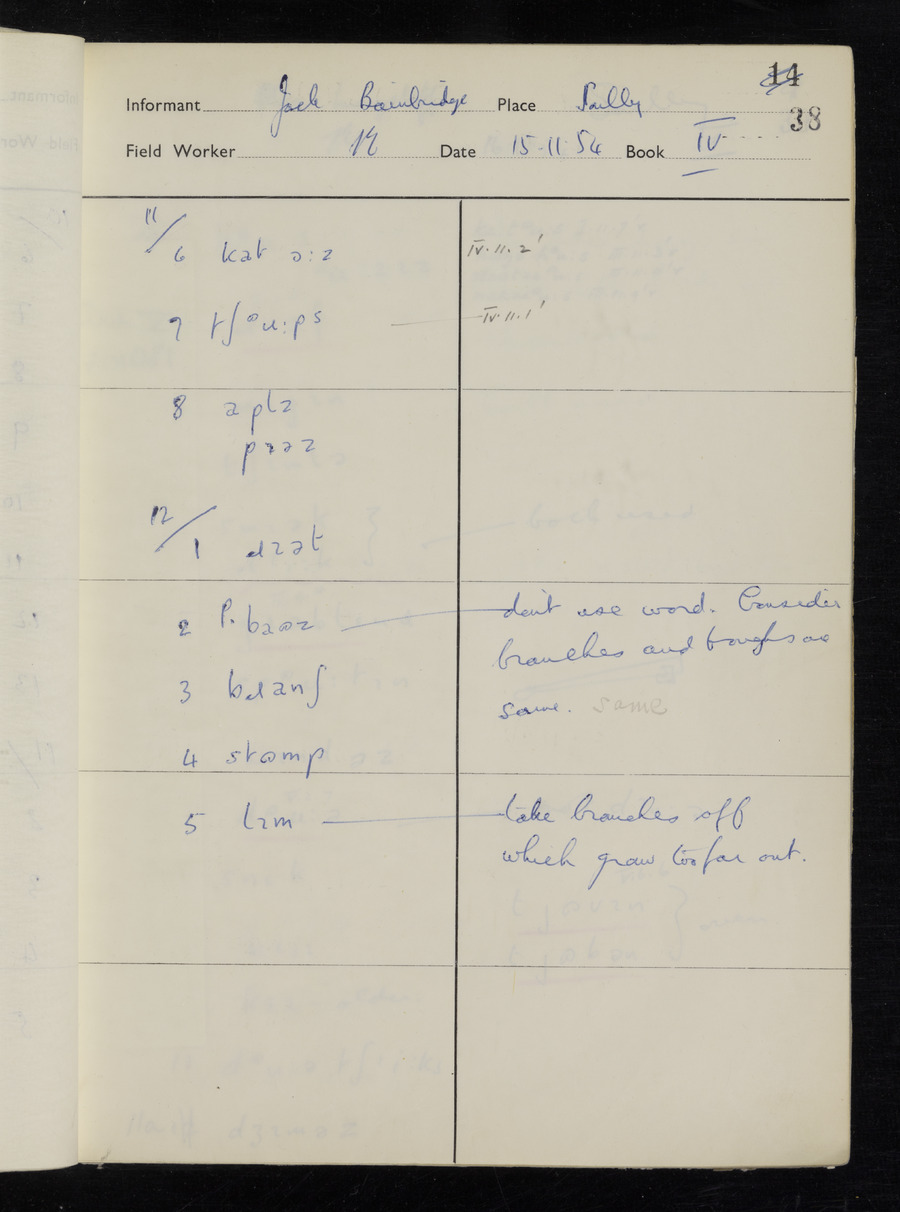 14
Informant Jack Bainbridge Place
38
Field Worker Date 15-11-54 Book IV
11/6 kat ɔ:z IV.11.2'
7 IV.11.1'
8 aplz
12/1
2 P. don't use word. Consider
branches and boughs as
3
same. same
4 stɷmp
5 lɪm take branches off
which grow too far out.